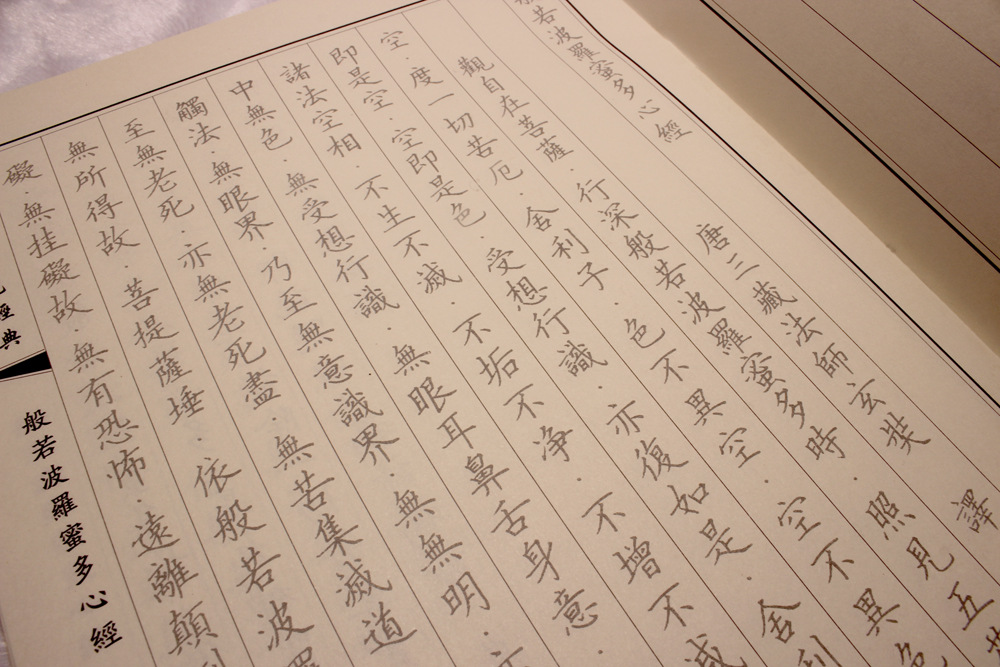 若波羅蜜多心經
唐三藏法師玄奘 譯
觀自在菩薩．行深般若波羅蜜多時．照見五
空．度一切苦厄．舍利子．色不異空．空不異色
即是空．空即是色．受想行識．亦復如是．舍利
諸法空相．不生不滅．不垢不净．不增不減
中無色．無受想行識．無眼耳鼻舌身意．
觸法．無眼界．乃至無意識界．無無明．
至無老死．亦無老死盡．無苦集滅道
無所得故．菩提薩埵．依般若波羅
礙．無挂礙故．無有恐怖．遠離顛
經典
般若波羅蜜多心經